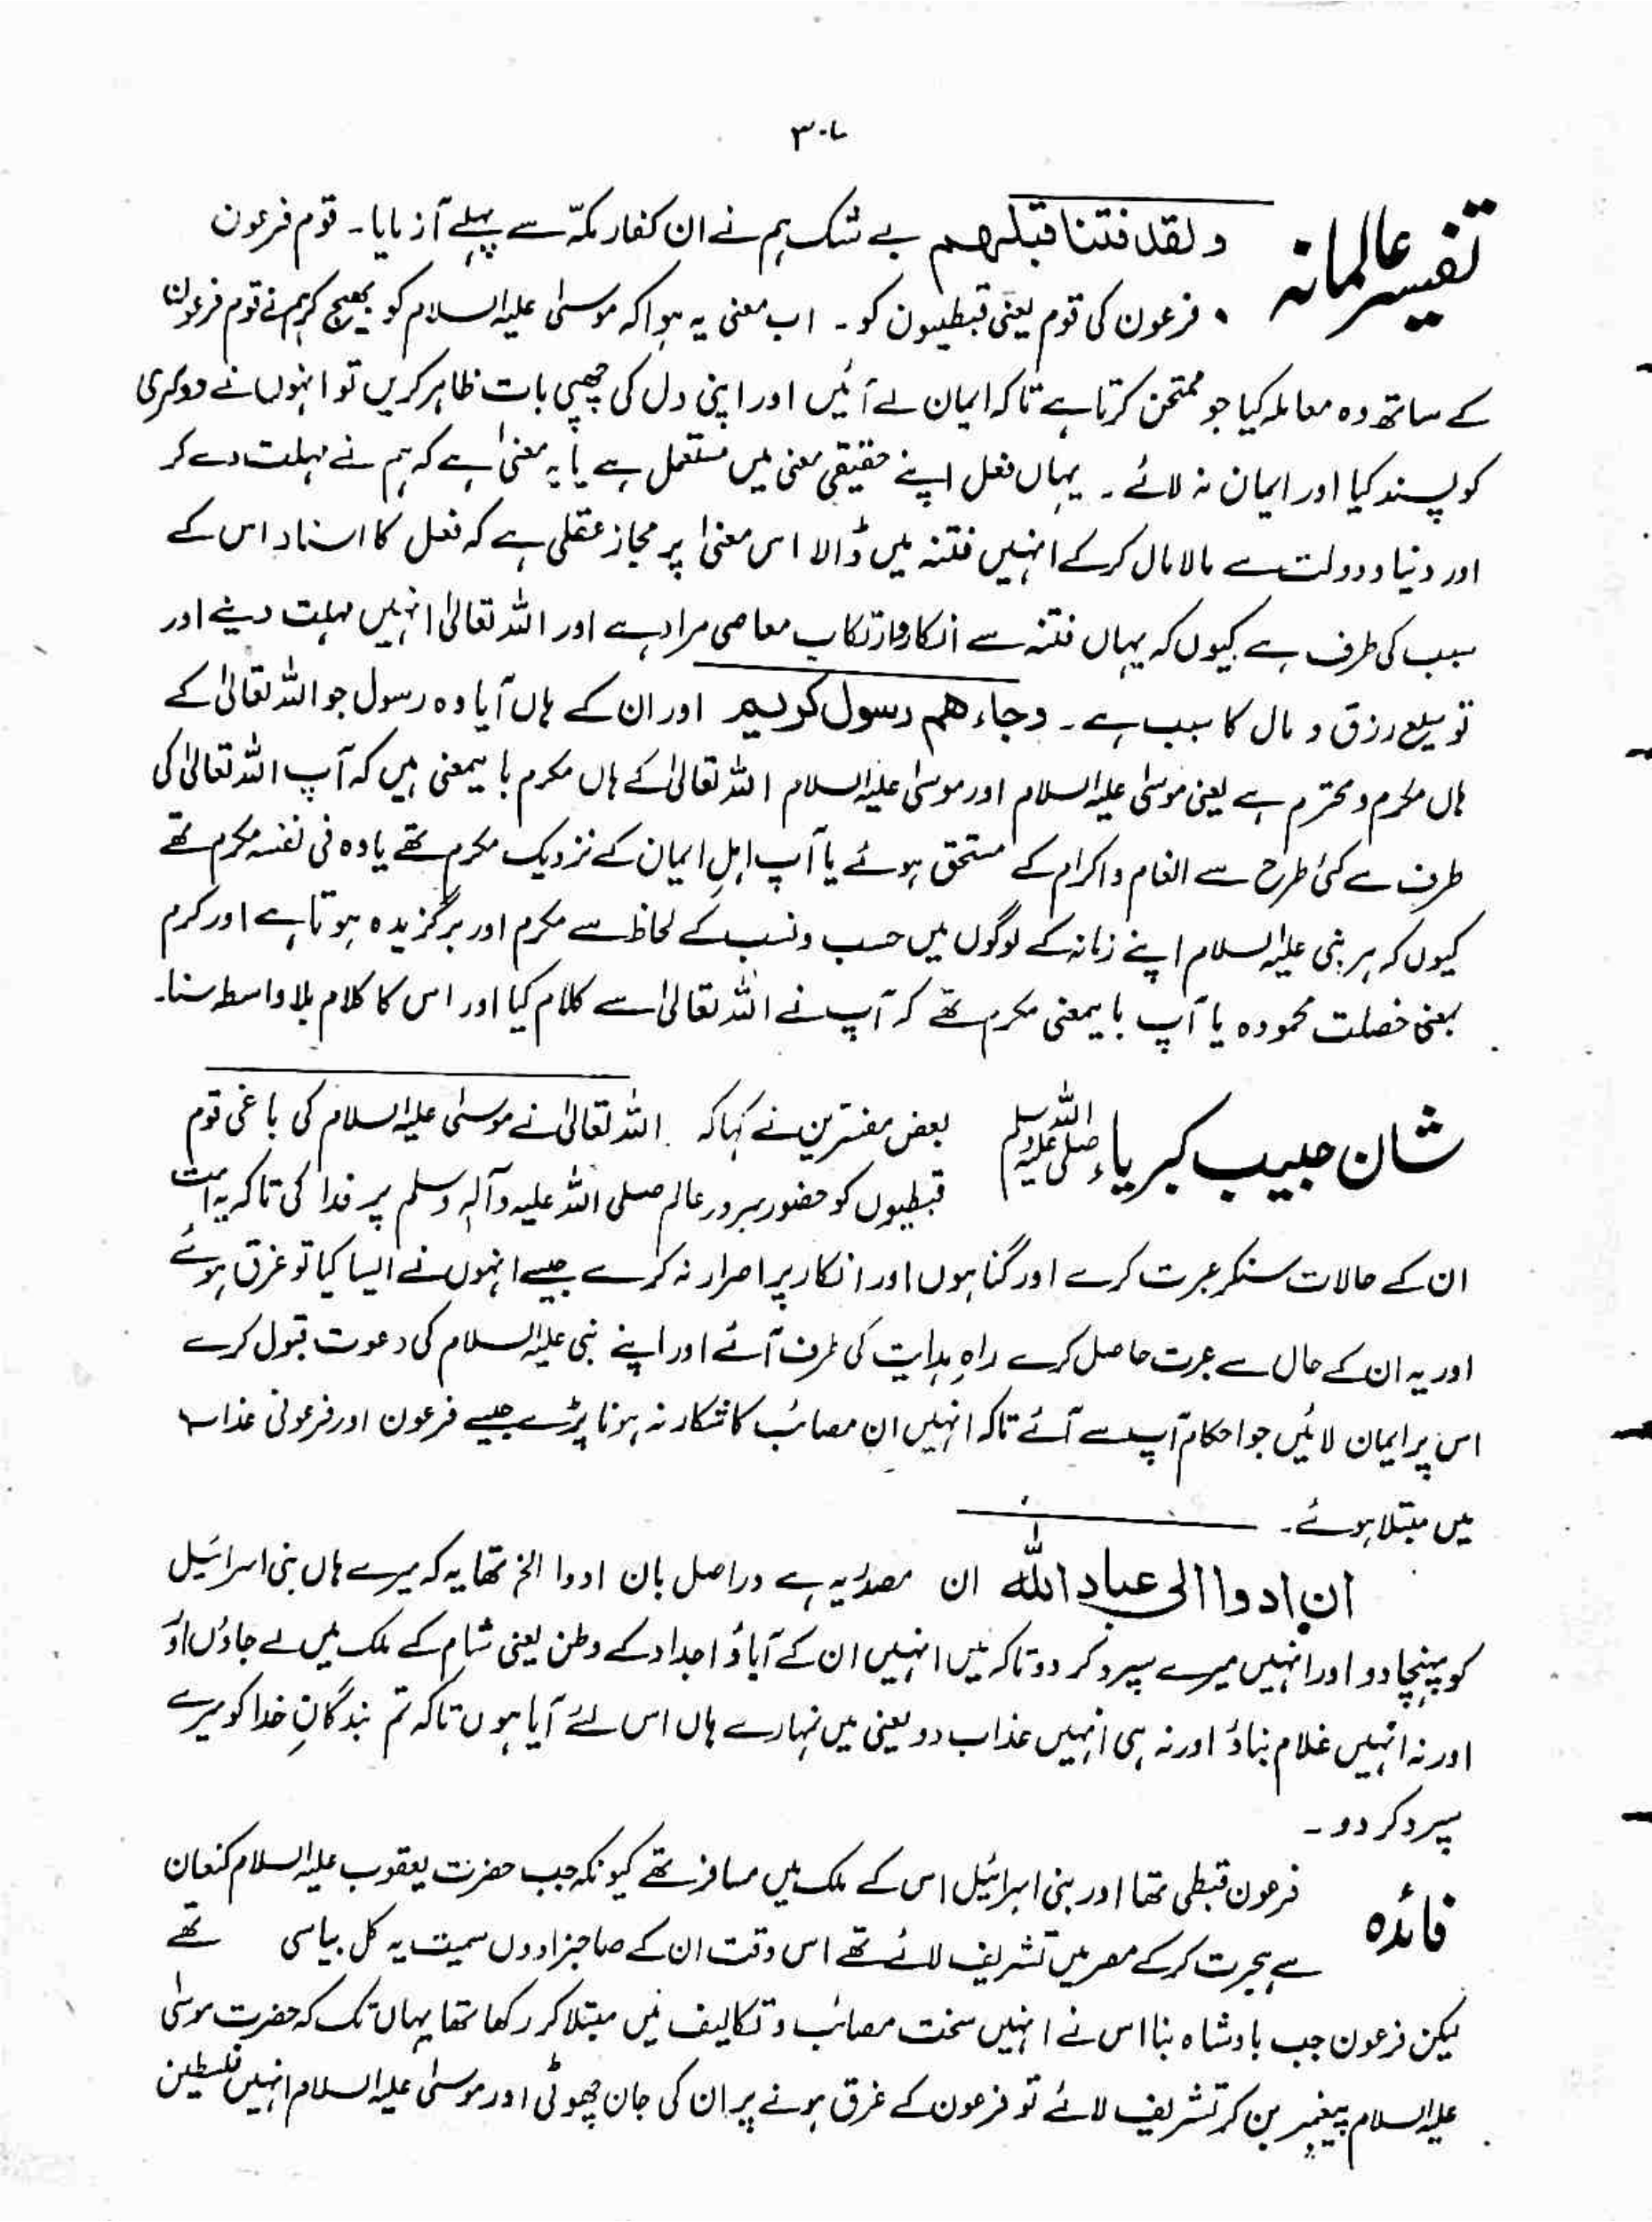 ٣٠٨
تفسیر عالمانہ
ولقد فتنا قبلہم بے شک ہم نے ان کفار مکہ سے پہلے آزمایا۔ قوم فرعون
فرعون کی قوم یعنی قبطیوں کو۔ اب معنی یہ ہوا کہ موسیٰ علیہ السلام کو بھیج کر ہم نے قوم فرعون
کے ساتھ وہ معاملہ کیا جو ممتحن کرتا ہے تاکہ ایمان لے آئیں اور اپنی دل کی چھپی بات ظاہر کریں تو انہوں نے دوسری
کو پسند کیا اور ایمان نہ لائے۔ یہاں فعل اپنے حقیقی معنی میں مستعمل ہے یا یہ معنیٰ ہے کہ ہم نے مہلت دے کر
اور دنیا و دولت سے مالا مال کر کے انہیں فتنہ میں ڈالا اس معنیٰ پر مجاز عقلی ہے کہ فعل کا اسناد اس کے
سبب کی طرف ہے کیوں کہ یہاں فتنہ سے انکار و ارتکاب معاصی مراد ہے اور اللہ تعالیٰ انہیں مہلت دینے اور
توسیع رزق و مال کا سبب ہے۔ وجاءھم رسول کریم اور ان کے ہاں آیا وہ رسول جو اللہ تعالیٰ کے
ہاں مکرم و محترم ہے یعنی موسیٰ علیہ السلام اور موسیٰ علیہ السلام اللہ تعالیٰ کے ہاں مکرم بایمعنی ہیں کہ آپ اللہ تعالیٰ کی
طرف سے کئی طرح سے انعام و اکرام کے مستحق ہوئے یا آپ اہلِ ایمان کے نزدیک مکرم تھے یا وہ فی نفسہ مکرم تھے
کیوں کہ ہر نبی علیہ السلام اپنے زمانہ کے لوگوں میں حسب و نسب کے لحاظ سے مکرم اور برگزیدہ ہوتا ہے اور کرم
بمعنی خصلت محمودہ یا آپ بایمعنی مکرم تھے کہ آپ نے اللہ تعالیٰ سے کلام کیا اور اس کا کلام بلا واسطہ سنا۔
شان حبیب کبریاء صلی اللہ علیہ وسلم
بعض مفسرین نے کہا کہ اللہ تعالیٰ نے موسیٰ علیہ السلام کی باغی قوم
قبطیوں کو حضور سرور عالم صلی اللہ علیہ وآلہٖ وسلم پر فدا کی تاکہ یہ امت
ان کے حالات سنکر عبرت کرے اور گناہوں اور انکار پر اصرار نہ کرے جیسے انہوں نے ایسا کیا تو غرق ہوئے
اور یہ ان کے حال سے عبرت حاصل کرے راہِ ہدایت کی طرف آئے اور اپنے نبی علیہ السلام کی دعوت قبول کرے
اس پر ایمان لائیں جو احکام آپ سے آئے تاکہ انہیں ان مصائب کا شکار نہ ہونا پڑے جیسے فرعون اور فرعونی عذاب
میں مبتلا ہوئے۔
ان ادوا الی عباد اللہ ان مصدریہ ہے دراصل بان ادوا الخ تھا یہ کہ میرے ہاں بنی اسرائیل
کو پہنچا دو اور انہیں میرے سپرد کر دو تاکہ میں انہیں ان کے آباؤ اجداد کے وطن یعنی شام کے ملک میں لے جاؤں اور
اور نہ انہیں غلام بناؤ اور نہ ہی انہیں عذاب دو یعنی میں تمہارے ہاں اس لئے آیا ہوں تاکہ تم بندگانِ خدا کو میرے
سپرد کر دو۔
فائدہ
فرعون قبطی تھا اور بنی اسرائیل اس کے ملک میں مسافر تھے کیونکہ جب حضرت یعقوب علیہ السلام کنعان
سے ہجرت کر کے مصر میں تشریف لائے تھے اس وقت ان کے صاحبزادوں سمیت یہ کل بیاسی تھے
لیکن فرعون جب بادشاہ بنا اس نے انہیں سخت مصائب و تکالیف میں مبتلا کر رکھا تھا یہاں تک کہ حضرت موسیٰ
علیہ السلام پیغمبر بن کر تشریف لائے تو فرعون کے غرق ہونے پر ان کی جان چھوٹی اور موسیٰ علیہ السلام انہیں فلسطین